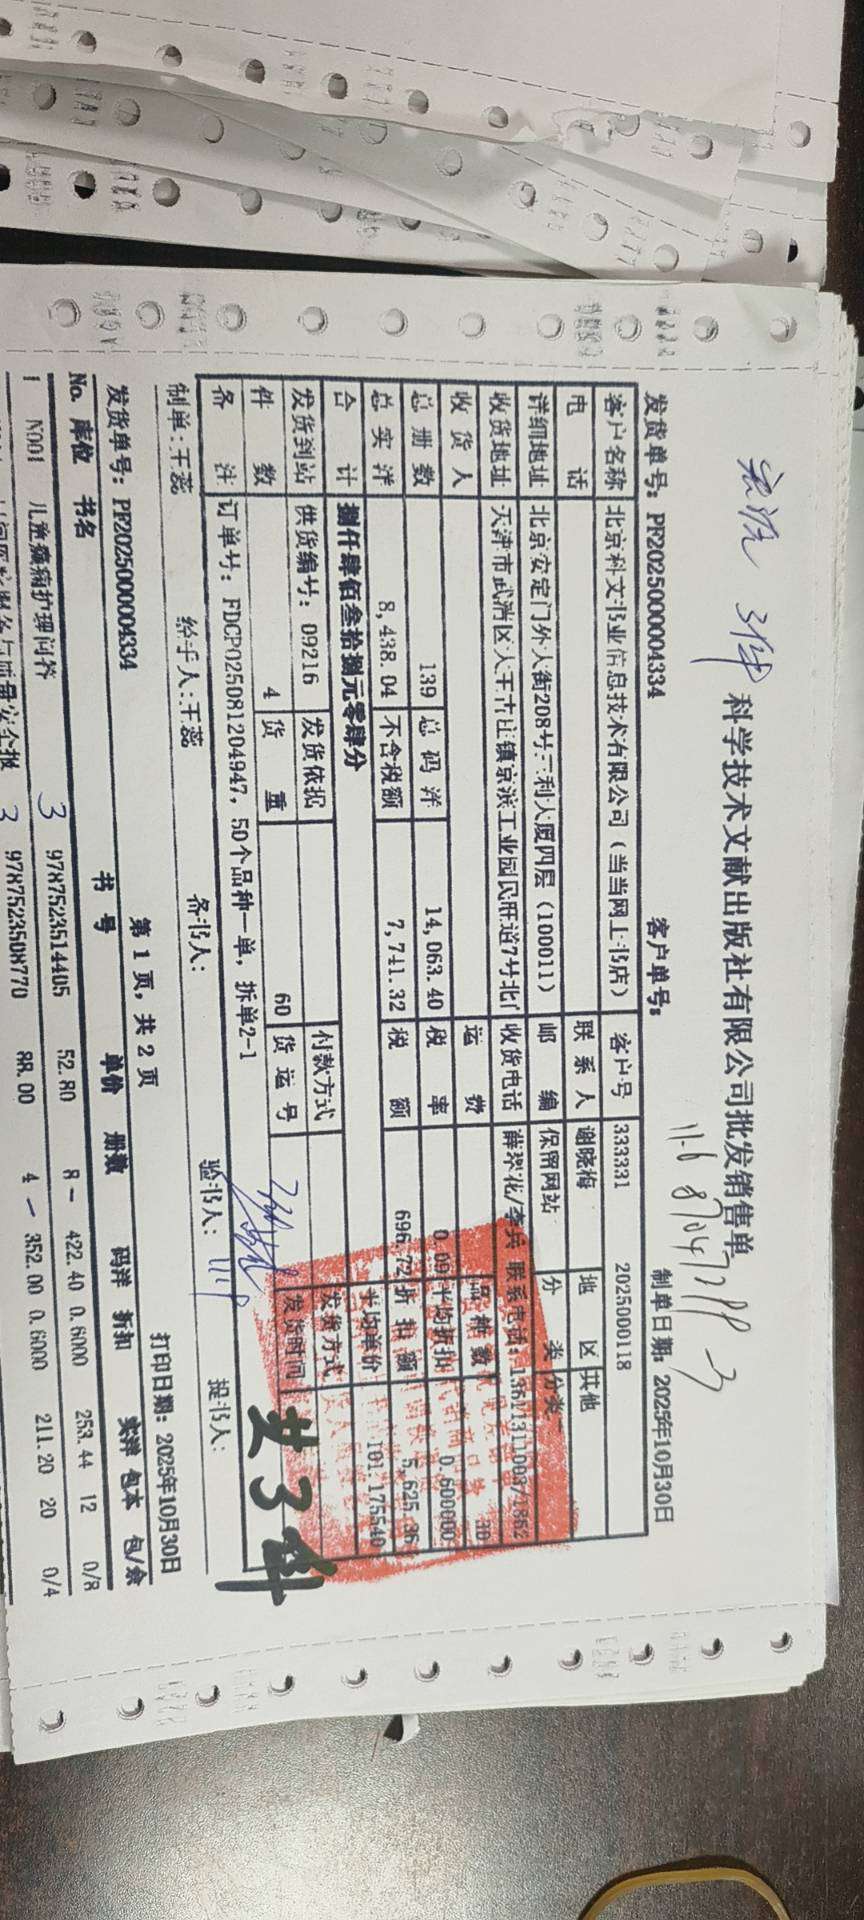 3件
科学技术文献出版社有限公司批发销售单
11-6 87047299-3
发货单号: PF2025000004334 客户单号: 制单日期: 2025年10月30日
客户名称 北京科文书业信息技术有限公司（当当网上书店） 客户号 333331 2025000118
电话 联系人 谢晓梅 地区 其他
详细地址 北京安定门外大街208号三利大厦四层（100011） 邮编 保留网站 分类 分类
收货地址 天津市武清区大王古庄镇京滨工业园民旺道7号北门 收货电话 薛翠花/李兵 联系电话: 13611311003/1862
收货人 运费 品种数 30
总册数 139 总码洋 14,063.40 税率 0.09 平均折扣 0.600000
总实洋 8,438.04 不含税额 7,741.32 税额 696.72 折扣额 5,625.36
合计 捌仟肆佰叁拾捌元零肆分 平均单价 101.175540
发货到站 供货编号: 09216 发货依据 付款方式 发货方式
件数 4 货重 60 货运号 发货时间
备注 订单号: FDCP025081204947, 50个品种一单, 拆单2-1
共3件
制单:王蕊 经手人:王蕊 备书人: 验书人: 提书人:
第 1 页, 共 2 页 打印日期: 2025年10月30日
发货单号: PF2025000004334
No. 库位 书名 书号 单价 册数 码洋 折扣 实洋 包本 包/余
1 N001 儿童癫痫护理问答 3 9787523514405 52.80 8 422.40 0.6000 253.44 12 0/8
3 9787523508770 88.00 4 352.00 0.6000 211.20 20 0/4